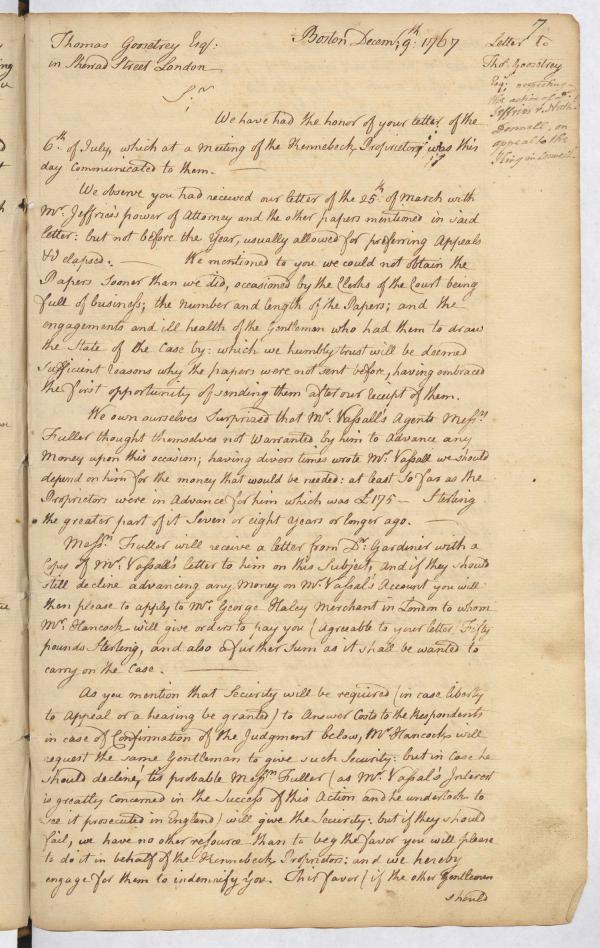 7
Boston Decemr. 9th: 1767
Thomas Goostrey Esqr.
in Sherrad Street London
Letter to
Thos. Goostrey
Esqr. respecting
the action of
Jeffries & Noth.
Donnell, on
appeal to the
King in Council.
Sir,
We have had the honor of your letter of the
6th. of July, which at a meeting of the Kennebeck Proprietors was this
day communicated to them. —
We observe you had received our letter of the 25th. of March with
Mr. Jeffries's power of Attorney and the other papers mentioned in said
letter: but not before the Year, usually allowed for preferring Appeals
was elapsed. — We mentioned to you we could not obtain the
Papers sooner than we did, occasioned by the Clerks of the Court being
full of business; the number and length of the Papers; and the
engagements and ill health of the Gentleman who had them to draw
the State of the Case by: which we humbly trust will be deemed
sufficient reasons why the papers were not sent before, having embraced
the first opportunity of sending them after our receipt of them.
We own ourselves Surprised that Mr. Vassall's Agents Messrs.
Fuller thought themselves not Warranted by him to Advance any
Money upon this occasion; having divers times wrote Mr. Vassall we should
depend on him for the money that would be needed: at least So far as the
Proprietors were in Advance for him which was £175 — Sterling
the greater part of it Seven or eight Years or longer ago. —
Messrs. Fuller will receive a letter from Dr. Gardiner with a
Copy of Mr. Vassall's letter to him on this Subject, and if they should
still decline advancing any Money on Mr. Vassal's Account you will
then please to apply to Mr. George Haley Merchant in London to whom
Mr. Hancock will give orders to pay you (agreable to your letter) Fifty
pounds Sterling, and also a further Sum as it shall be wanted to
carry on the Case. —
As you mention that Security will be required (in case liberty
to Appeal or a hearing be granted) to Answer Costs to the Respondents
in case of Confirmation of the Judgment below, Mr. Hancock will
request the same Gentleman to give such Security: but in Case he
should decline, tis probable Messrs. Fuller (as Mr. Vassal's Interest
is greatly concerned in the Success of this Action and he undertook to
see it prosecuted in England) will give the Security: but if they should
fail, we have no other resource than to beg the favor you will please
to do it in behalf of the Kennebeck Proprietors: and we hereby
engage for them to indemnify You. This favor (if the other Gentlemen
should